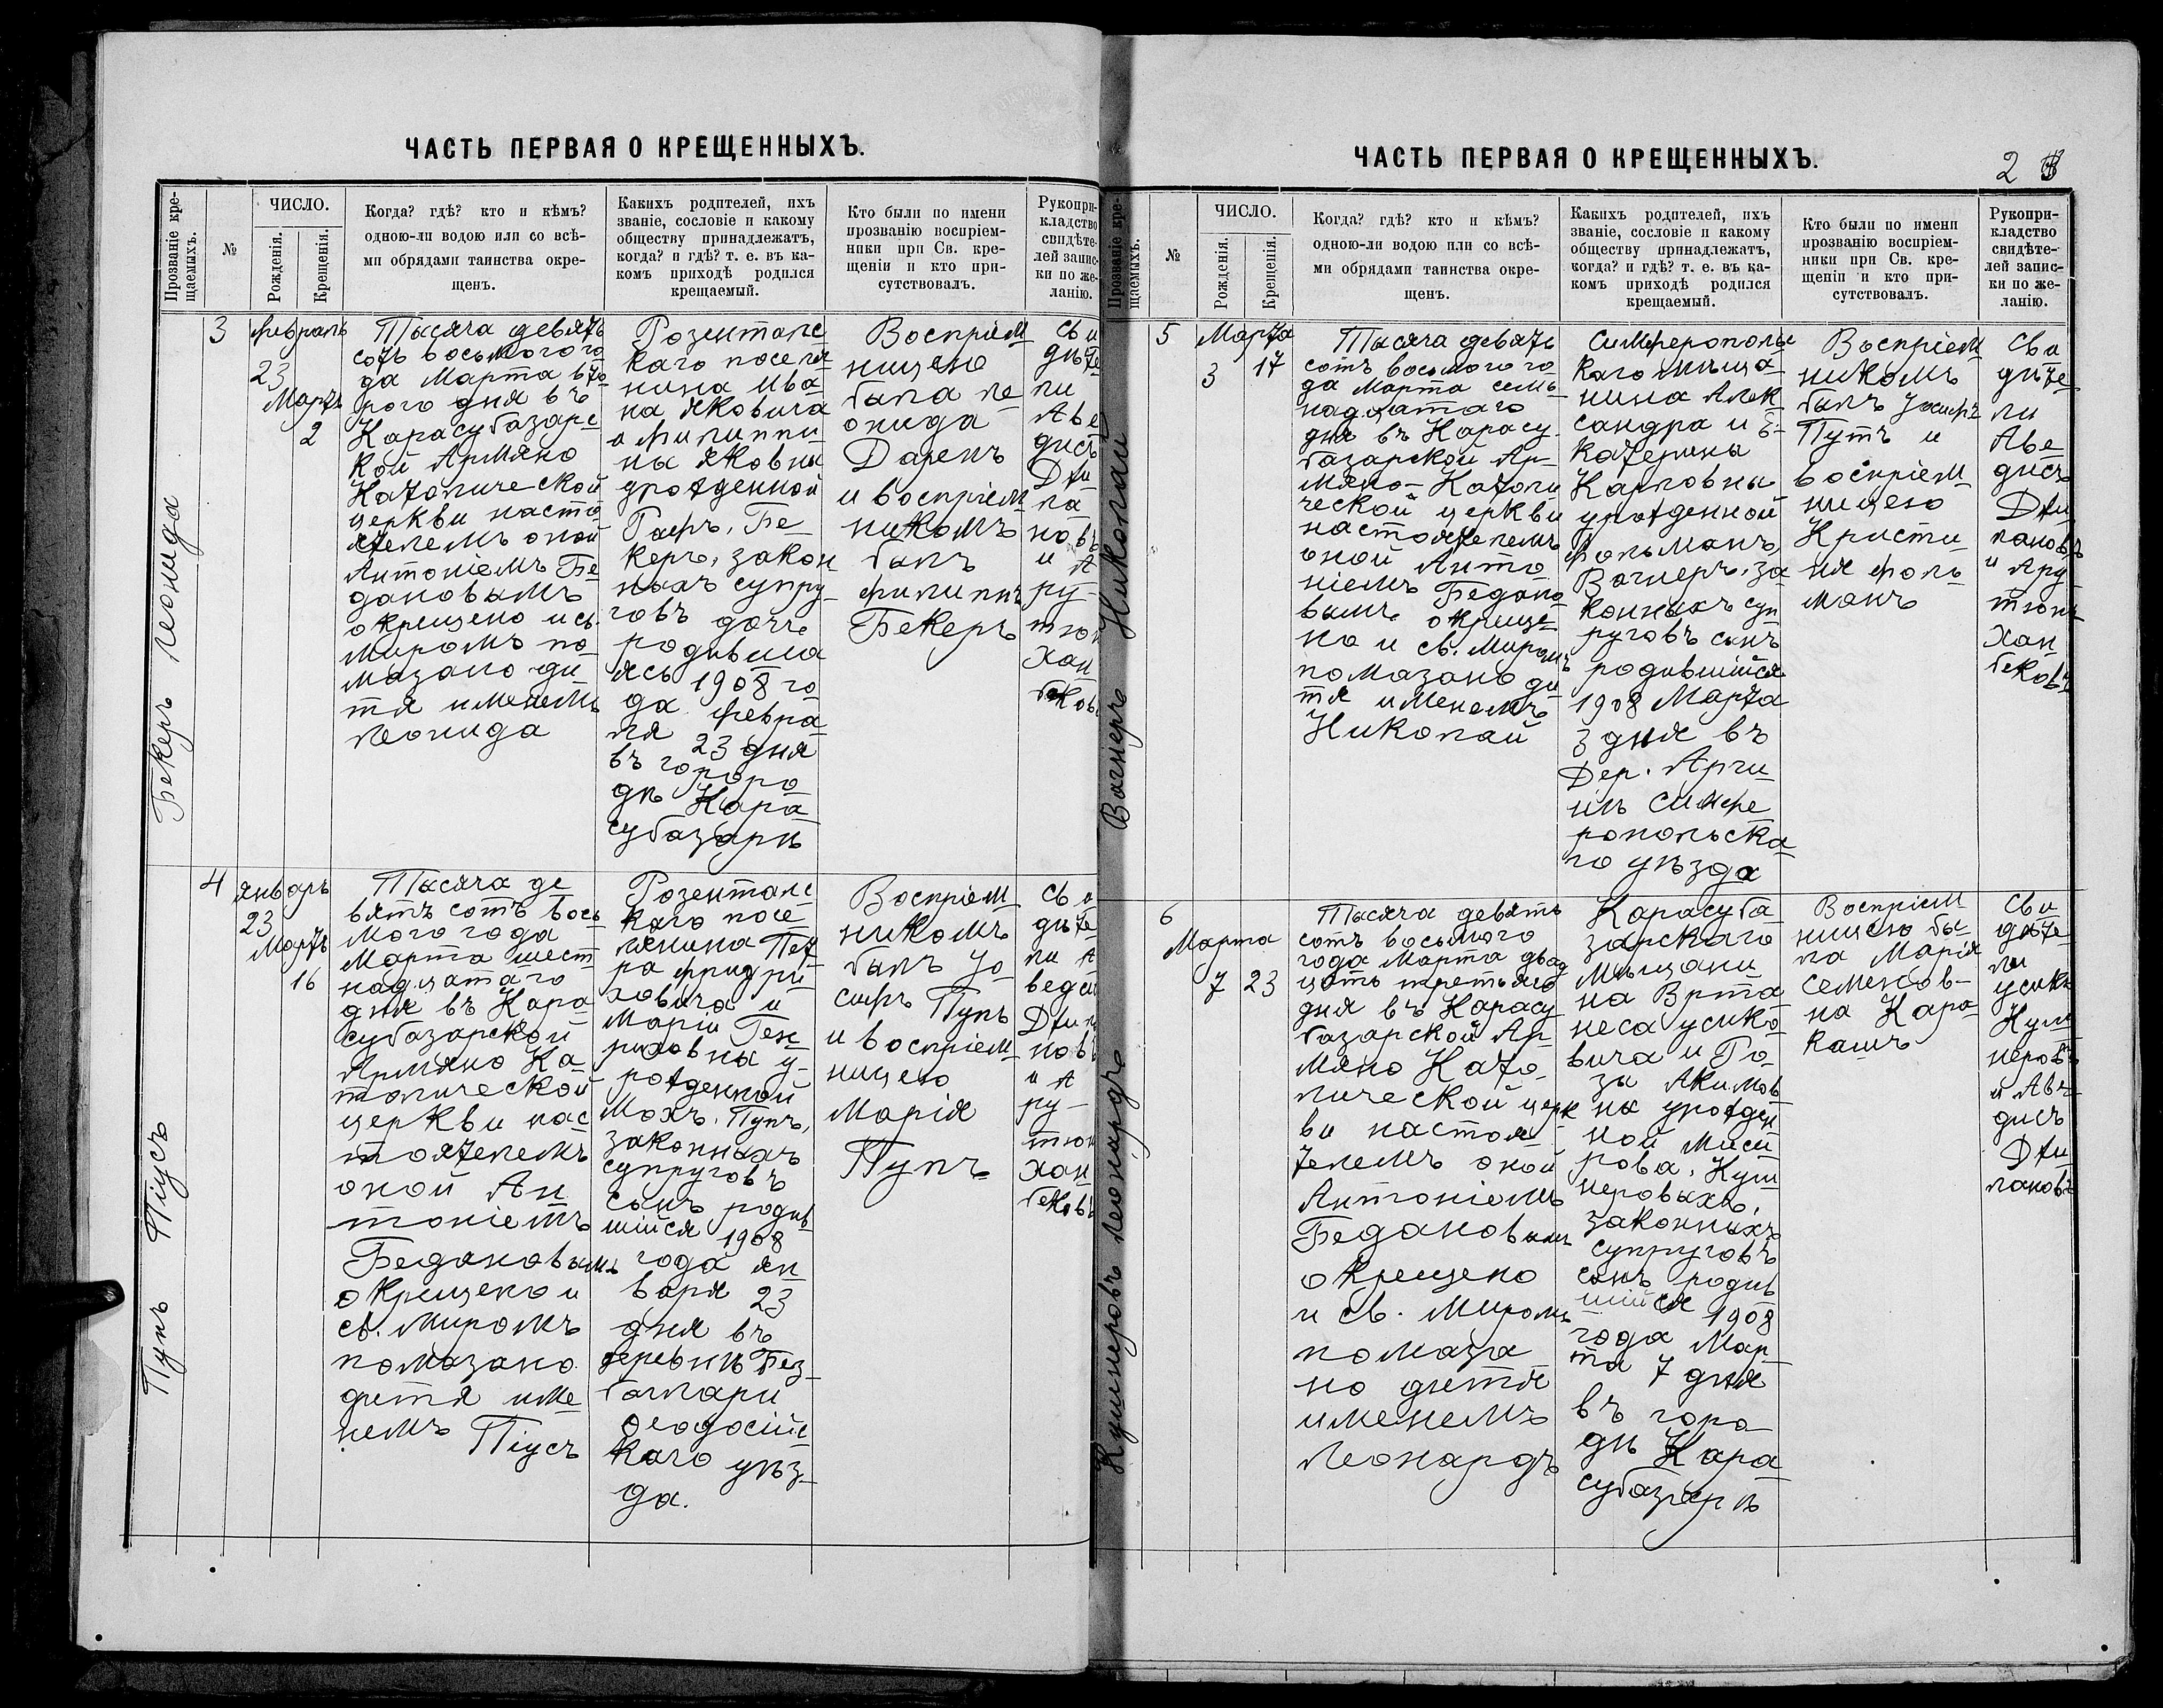 ЧАСТЬ ПЕРВАЯ О КРЕЩЕННЫХЪ.
Прозваніе кре-
щаемыхъ.
№
ЧИСЛО.
Рожденія.
Крещенія.
Когда? гдѣ? кто и кѣмъ?
одною-ли водою или со всѣ-
ми обрядами таинства окре-
щенъ.
Какихъ родителей, ихъ
званіе, сословіе и какому
обществу принадлежатъ,
когда? и гдѣ? т. е. въ ка-
комъ приходѣ родился
крещаемый.
Кто были по имени
прозванію воспріем-
ники при Св. кре-
щеніи и кто при-
сутствовалъ.
Рукопри-
кладство
свидѣте-
лей запис-
ки по же-
ланію.
Бекеръ Леонида
3
Февраль
23
Мартъ
2
Тысяча девять
сотъ восьмого го
да Марта вто
рого дня въ
Карасубазарс
кой Армяно
Католической
церкви насто
ятелемъ оной
Антоніемъ Бе
дановымъ
окрещено и св.
миромъ по
мазано ди
тя именемъ
Леонида
Розенталь
каго поселя
нина Ива
на Яковича
и Филиппи
ны Яковны
урожденной
Гафъ, Бе
керъ, закон
ныхъ супру
говъ дочь
родивша
ясь 1908 го
да Февра
ля 23 дня
въ горо
дѣ Кара
субазарѣ
Воспріем
ницею
была Ле
онида
Даренъ
и воспріем
никомъ
былъ
Филиппъ
Бекеръ
Сви
дѣте
ли
Аве
дисъ
Джи
ла
новъ
и А
ру-
тюн
Хан
бековъ
Пупъ Піусъ
4
Январь
23
Мартъ
16
Тысяча де
вять сотъ вось
мого года
Марта шест
надцатаго
дня въ Кара
субазарской
Армяно Ка
толической
церкви нас
тоятелемъ
оной Ан
тоніемъ
Бедановымъ
окрещено и
св. миромъ
помазано
дитя име
немъ Піусъ
Розенталь
каго посе
лянина Пет
ра Фридри
ховича и
Маріи Ген
риховны у-
рожденной
Мохъ, Пупъ,
законныхъ
супруговъ
сынъ родив
шійся 1908
года Ян
варя 23
дня въ
деревнѣ Без
багпари
Ѳеодосійс
каго уѣз-
да.
Воспріем
никомъ
былъ Іо
сифъ Пупъ
и воспріем
ницею
Марія
Пупъ
Сви
дѣте
ли А
ведис
Джила
новъ
и А
ру-
тюн
Хан
бековъ
ЧАСТЬ ПЕРВАЯ О КРЕЩЕННЫХЪ.
2
Прозваніе кре-
щаемыхъ.
№
ЧИСЛО.
Рожденія.
Крещенія.
Когда? гдѣ? кто и кѣмъ?
одною-ли водою или со всѣ-
ми обрядами таинства окре-
щенъ.
Какихъ родителей, ихъ
званіе, сословіе и какому
обществу принадлежатъ,
когда? и гдѣ? т. е. въ ка-
комъ приходѣ родился
крещаемый.
Кто были по имени
прозванію воспріем-
ники при Св. кре-
щеніи и кто при-
сутствовалъ.
Рукопри-
кладство
свидѣте-
лей запис-
ки по же-
ланію.
Вагнеръ Николай
5
Марта
3 17
Тысяча девять
сотъ восьмого го
да Марта семь
надцатаго
дня въ Карасу
базарской Ар-
мяно-Католи
ческой церкви
настоятелемъ
оной Анто
ніемъ Бедано
вымъ окреще
но и св. миромъ
помазано ди
тя именемъ
Николай
Симферополь
каго мѣща
нина Алек
сандра и Е-
катерины
Карловны
урожденной
Фольманъ,
Вагнеръ, за
конныхъ суп
руговъ сынъ
родившійся
1908 Марта
3 дня въ
Дер. Арги
нѣ Симфе
ропольска
го уѣзда
Воспріем
никомъ
былъ Іосифъ
Путъ и
воспріем
ницею
Кристи
ня Фоль
манъ
Сви
дѣте
ли
Аве
дисъ
Джи
лановъ
и Ару
тюнъ
Хан
бековъ
Кушнеровъ Леонардъ
6
Марта
7 23
Тысяча девять
сотъ восьмого
года Марта двад
цать третьяго
дня въ Карасу
базарской Ар
мяно Като-
лической церк
ви настоя
телемъ оной
Антоніемъ
Бедановымъ
окрещено
и св. миромъ
помаза
но дитя
именемъ
Леонардъ
Карасуба
зарскаго
Мѣщани
на Врта
неса Усико
вича и Ро-
зы Акимов
ны урожден
ной Маси
рова, Куш
неровыхъ,
законныхъ
супруговъ
сынъ родив
шійся 1908
года Мар
та 7 дня
въ горо
дѣ Кара
субазарѣ
Воспріем
ницею бы-
ла Марія
Семенов-
на Кара
кашъ
Сви
дѣте
ли
Усикъ
Куш
неровъ
и Аве
дисъ
Джи
лановъ